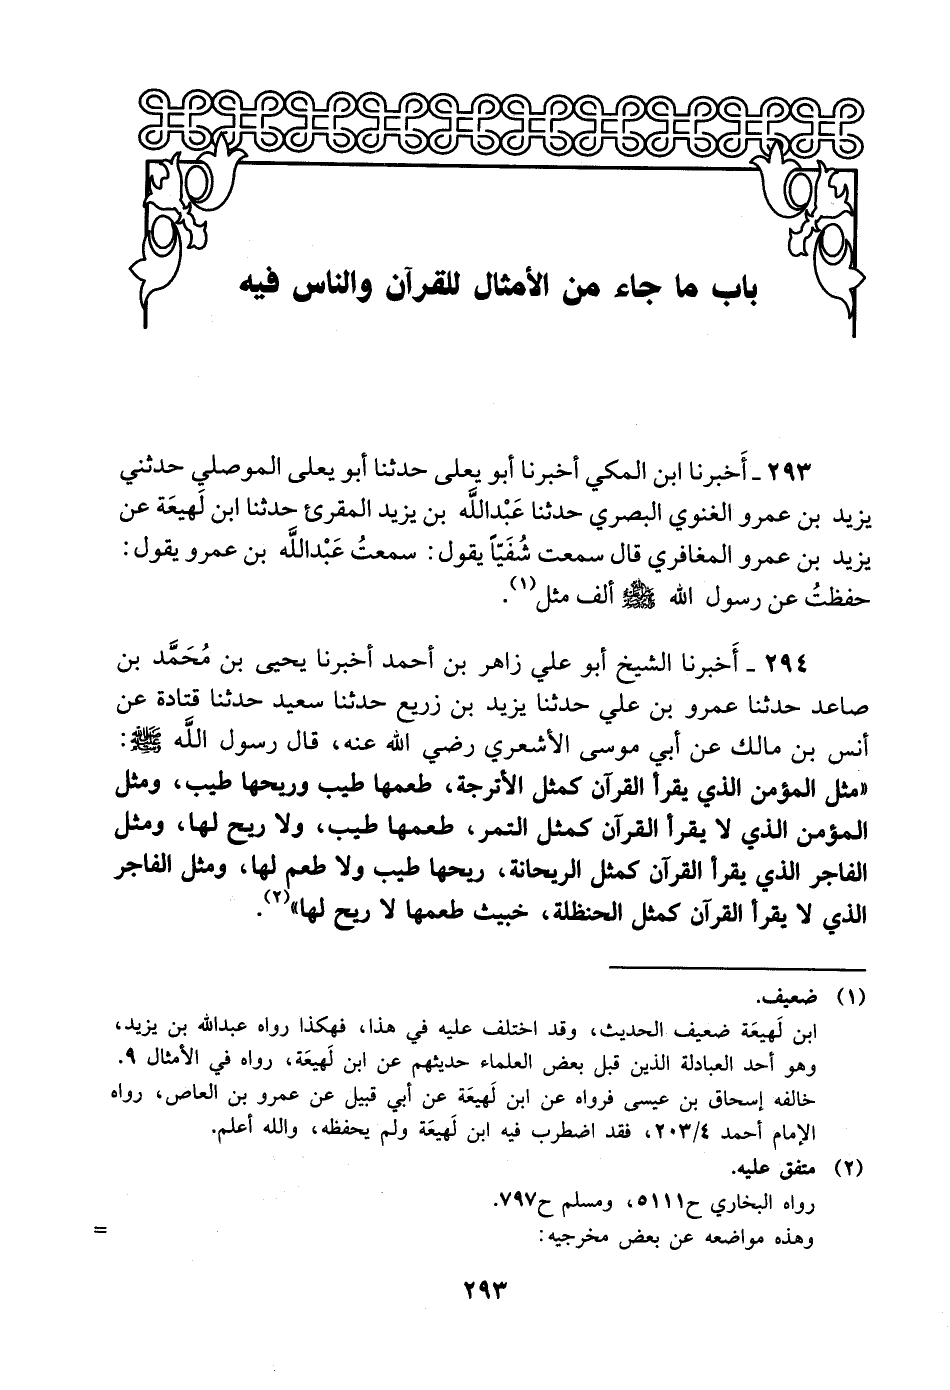 باب ما جاء من الأمثال للقرآن والناس فيه
٢٩٣ - أَخبرنا ابن المكي أخبرنا أبو يعلى حدثنا أبو يعلى الموصلي حدثني
يزيد بن عمرو الغنوي البصري حدثنا عَبْداللَّه بن يزيد المقرئ حدثنا ابن لَهيعَة عن
يزيد بن عمرو المغافري قال سمعت شُفَيّاً يقول: سمعتُ عَبْداللَّه بن عمرو يقول:
حفظتُ عن رسول الله ﷺ ألف مثل(١).
٢٩٤ - أَخبرنا الشيخ أبو علي زاهر بن أحمد أخبرنا يحيى بن مُحَمَّد بن
صاعد حدثنا عمرو بن علي حدثنا يزيد بن زريع حدثنا سعيد حدثنا قتادة عن
أنس بن مالك عن أبي موسى الأشعري رضي الله عنه، قال رسول اللَّه ﷺ:
«مثل المؤمن الذي يقرأ القرآن كمثل الأترجة، طعمها طيب وريحها طيب، ومثل
المؤمن الذي لا يقرأ القرآن كمثل التمر، طعمها طيب، ولا ريح لها، ومثل
الفاجر الذي يقرأ القرآن كمثل الريحانة، ريحها طيب ولا طعم لها، ومثل الفاجر
الذي لا يقرأ القرآن كمثل الحنظلة، خبيث طعمها لا ريح لها»(٢).
(١) ضعيف.
ابن لَهيعَة ضعيف الحديث، وقد اختلف عليه في هذا، فهكذا رواه عبدالله بن يزيد،
وهو أحد العبادلة الذين قبل بعض العلماء حديثهم عن ابن لَهيعَة، رواه في الأمثال ٩.
خالفه إسحاق بن عيسى فرواه عن ابن لَهيعَة عن أبي قبيل عن عمرو بن العاص، رواه
الإمام أحمد ٢٠٣/٤، فقد اضطرب فيه ابن لَهيعَة ولم يحفظه، والله أعلم.
(٢) متفق عليه.
رواه البخاري ح٥١١١، ومسلم ح٧٩٧.
وهذه مواضعه عن بعض مخرجيه: =
٢٩٣